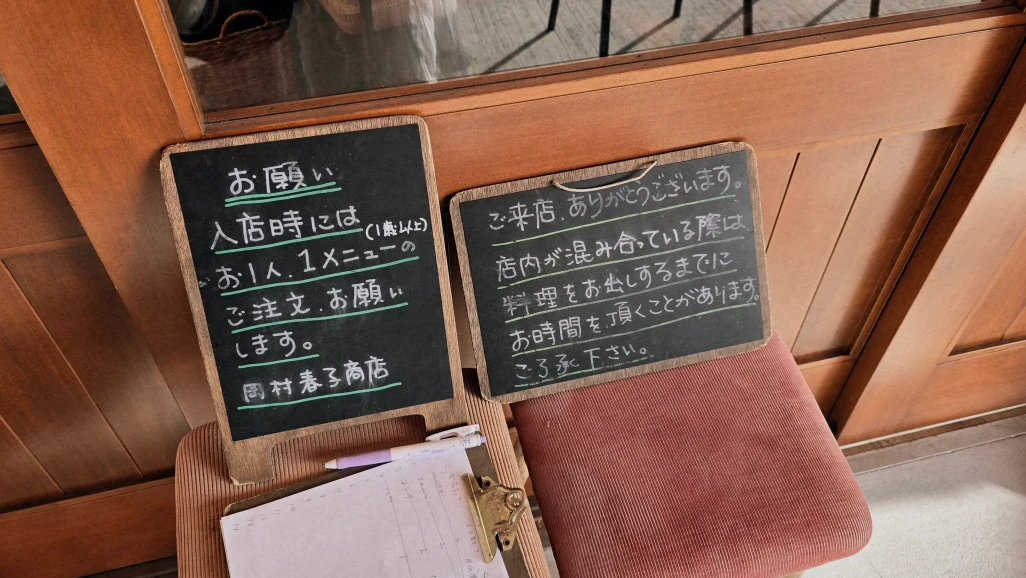 お願い
入店時には
(1歳以上)
お1人、1メニューの
ご注文、お願い
します。
岡村春子商店
ご来店、ありがとうございます。
店内が混み合っている際は
料理をお出しするまでに
お時間を頂くことがあります。
ご了承下さい。